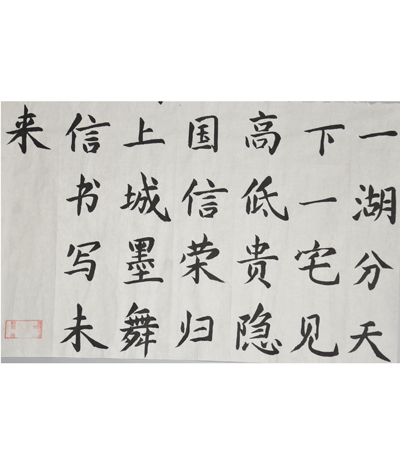 一湖分天
下一宅见
高低贵隐
国信荣归
上城墨舞
信书写未
来